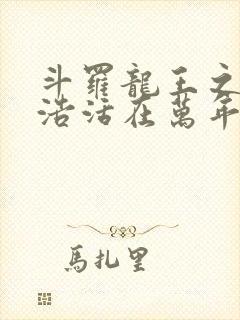 斗羅龍王之
浩活在萬年
馬扎里